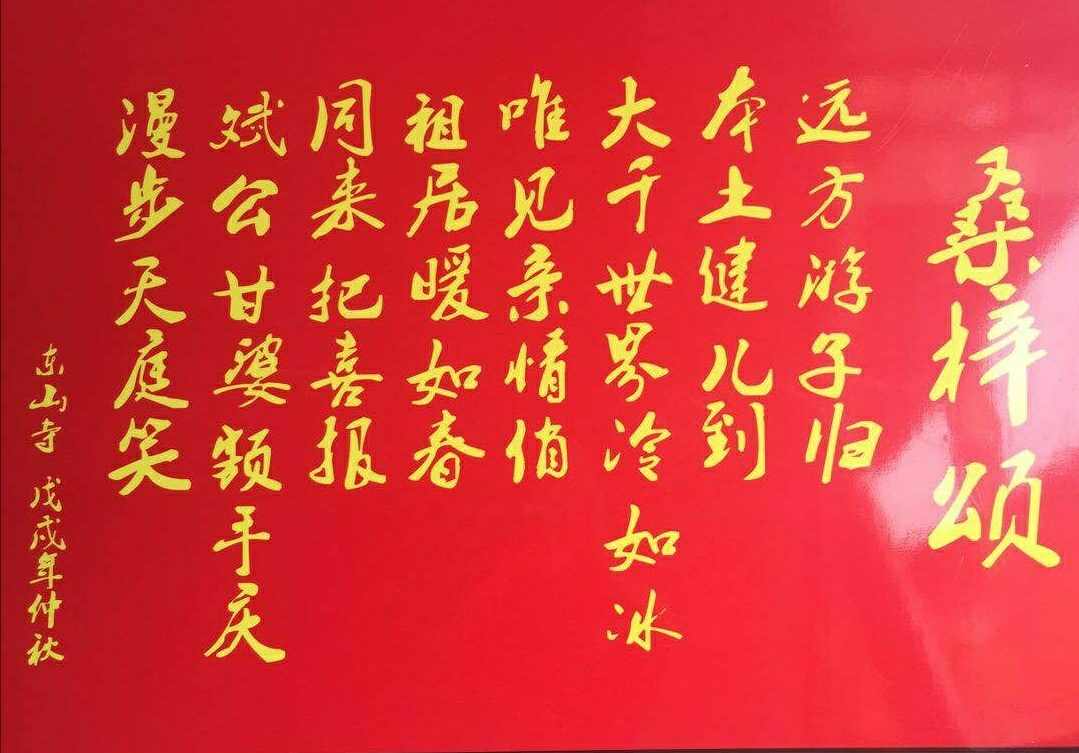 桑梓颂
远方游子归
本土健儿到
大千世界冷如冰
唯见亲情俏
祖居暖如春
同来把喜报
斌公甘婆额手庆
漫步天庭笑
东山寺 戊戌年仲秋